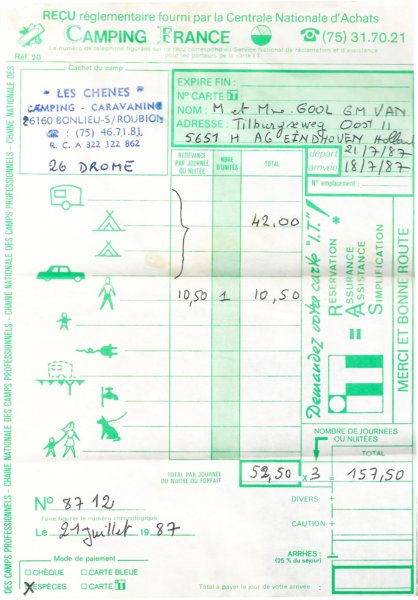 REÇU réglementaire fourni par la Centrale Nationale d'Achats
CAMPING FRANCE ☎ (75) 31.70.21
Le numéro de téléphone figurant sur ce reçu correspond au Service National de réclamation et d'assistance
pour les porteurs de la carte I.T.
Réf. 20
Cachet du camp
" LES CHENES "
CAMPING - CARAVANING
26160 BONLIEU-S/ROUBION
☎ : (75) 46.71.81
R. C. A 322 122 862
26 DROME
EXPIRE FIN :
N° CARTE IT
NOM : M et Mme GOOL GM VAN
ADRESSE : Tilburgseweg Oost 11
5651 H AG EINDHOVEN Holland
départ 21/7/87
arrivée 18/7/87
N° emplacement :
REDEVANCE PAR JOURNÉE OU NUITÉE
NBRE D'UNITÉS
TOTAL
42,00
10,50 1 10,50
Demandez votre carte "I.T!"
RESERVATION
ASSURANCE
ASSISTANCE
SIMPLIFICATION
IT
MERCI ET BONNE ROUTE
CHAINE NATIONALE DES CAMPS PROFESSIONNELS
NOMBRE DE JOURNÉES
OU NUITÉES
TOTAL
TOTAL PAR JOURNÉE
OU NUITÉE OU FORFAIT
52,50 x 3 = 157,50
N° 8712
Faire figurer le numéro chronologique
Le 21 juillet 1987
DIVERS +
CAUTION +
ARRHES : -
(25 % du séjour)
Mode de paiement
CHÈQUE CARTE BLEUE
X ESPÈCES CARTE IT
Total à payer le jour de votre arrivée